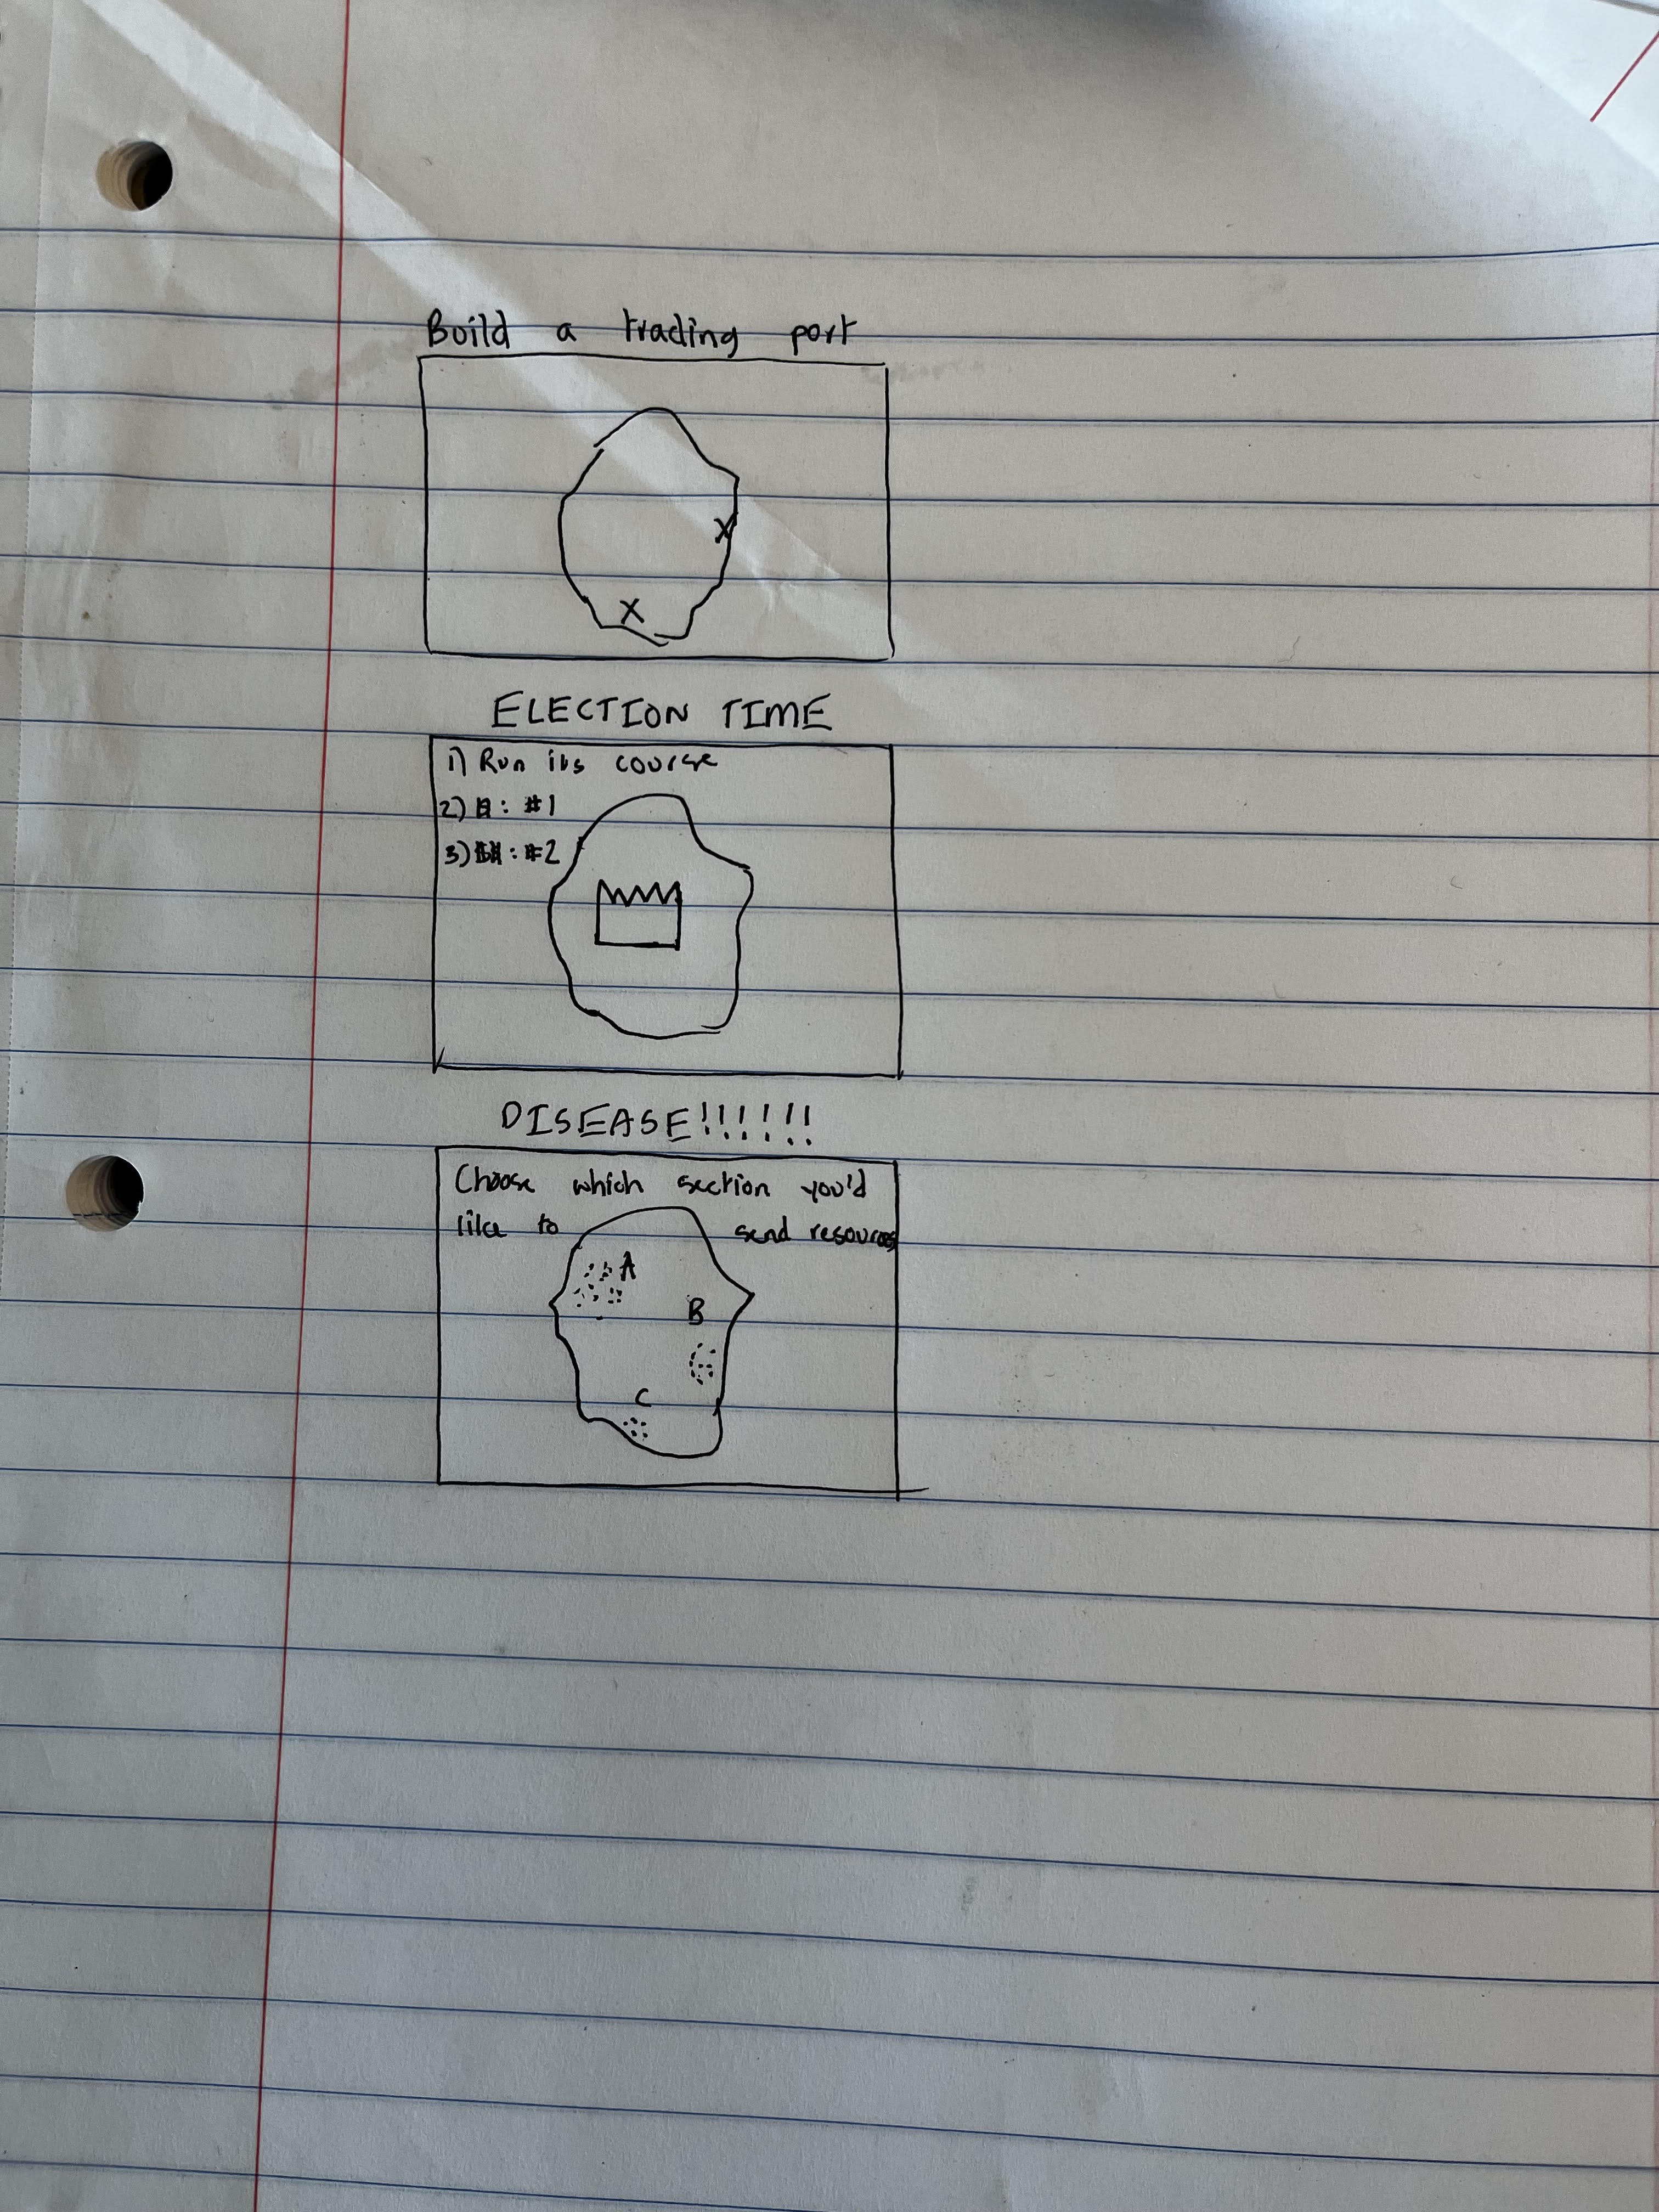 Build a trading port
X
X
ELECTION TIME
1) Run its course
2) : #1
3) : #2
DISEASE!!!!!!
Choose which section you'd
like to send resources
A
B
C